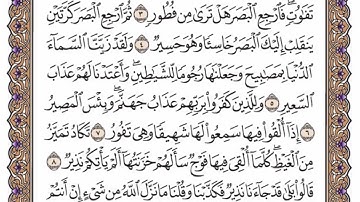 تَفَٰوُتٍۖ فَٱرۡجِعِ ٱلۡبَصَرَ هَلۡ تَرَىٰ مِن فُطُورٖ ٣ ثُمَّ ٱرۡجِعِ ٱلۡبَصَرَ كَرَّتَيۡنِ
يَنقَلِبۡ إِلَيۡكَ ٱلۡبَصَرُ خَاسِئٗا وَهُوَ حَسِيرٞ ٤ وَلَقَدۡ زَيَّنَّا ٱلسَّمَآءَ
ٱلدُّنۡيَا بِمَصَٰبِيحَ وَجَعَلۡنَٰهَا رُجُومٗا لِّلشَّيَٰطِينِۖ وَأَعۡتَدۡنَا لَهُمۡ عَذَابَ
ٱلسَّعِيرِ ٥ وَلِلَّذِينَ كَفَرُواْ بِرَبِّهِمۡ عَذَابُ جَهَنَّمَۖ وَبِئۡسَ ٱلۡمَصِيرُ
٦ إِذَآ أُلۡقُواْ فِيهَا سَمِعُواْ لَهَا شَهِيقٗا وَهِيَ تَفُورُ ٧ تَكَادُ تَمَيَّزُ
مِنَ ٱلۡغَيۡظِۖ كُلَّمَآ أُلۡقِيَ فِيهَا فَوۡجٞ سَأَلَهُمۡ خَزَنَتُهَآ أَلَمۡ يَأۡتِكُمۡ نَذِيرٞ ٨
قَالُواْ بَلَىٰ قَدۡ جَآءَنَا نَذِيرٞ فَكَذَّبۡنَا وَقُلۡنَا مَا نَزَّلَ ٱللَّهُ مِن شَيۡءٍ إِنۡ أَنتُمۡ